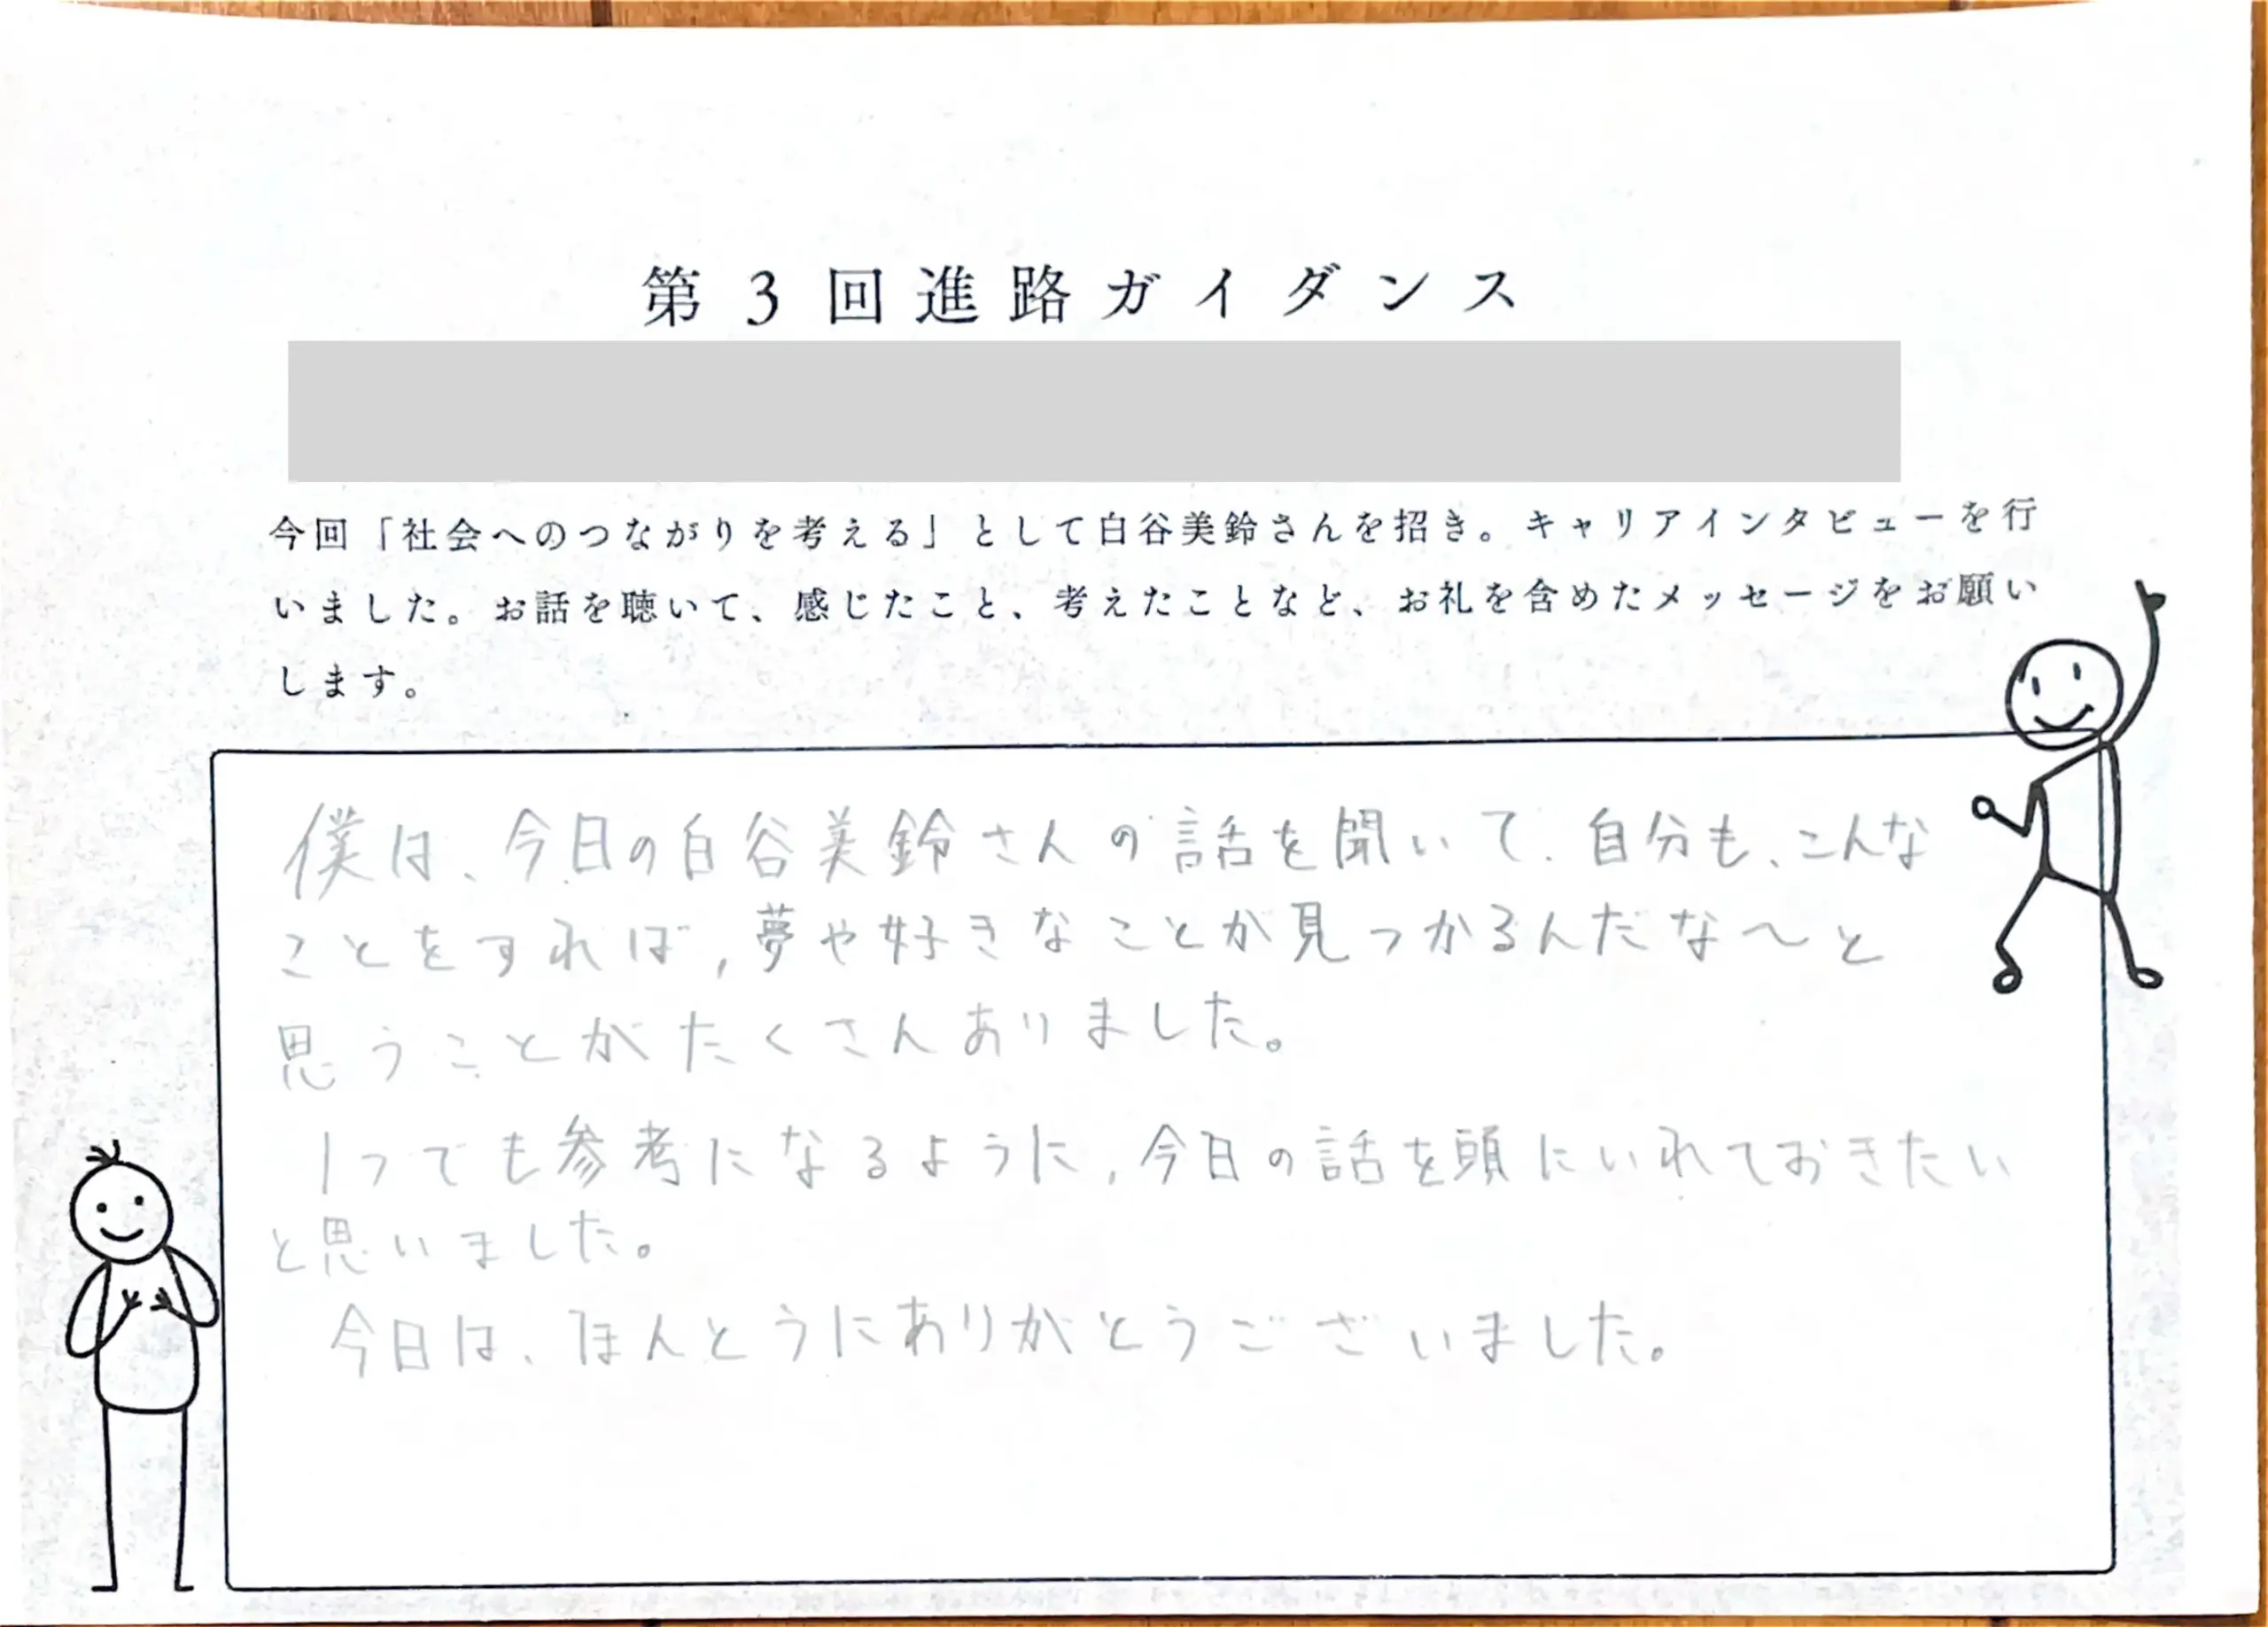 第3回進路ガイダンス
今回「社会へのつながりを考える」として白谷美鈴さんを招き。キャリアインタビューを行
いました。お話を聴いて、感じたこと、考えたことなど、お礼を含めたメッセージをお願い
します。
僕は、今日の白谷美鈴さんの話を聞いて、自分も、こんな
ことをすれば,夢や好きなことが見つかるんだな〜と
思うことがたくさんありました。
1つでも参考になるように,今日の話を頭にいれておきたい
と思いました。
今日は、ほんとうにありがとうございました。